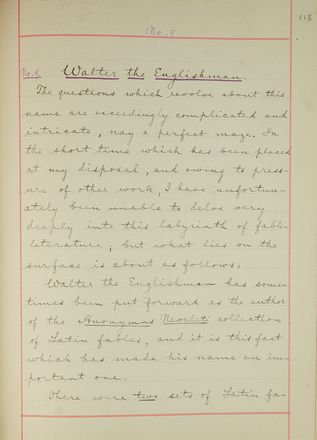 118
No. 9
No. 9. Walter the Englishman.
The questions which revolve about this
name are exceedingly complicated and
intricate, nay a perfect maze. In
the short time which has been placed
at my disposal, and owing to press-
ure of other work, I have unfortun-
ately been unable to delve very
deeply into this labyrinth of fable-
literature; but what lies on the
surface is about as follows:
Walter the Englishman has some-
times been put forward as the author
of the Anonymus Neveleti collection
of Latin fables, and it is this fact
which has made his name an im-
portant one.
There were two sets of Latin fa-